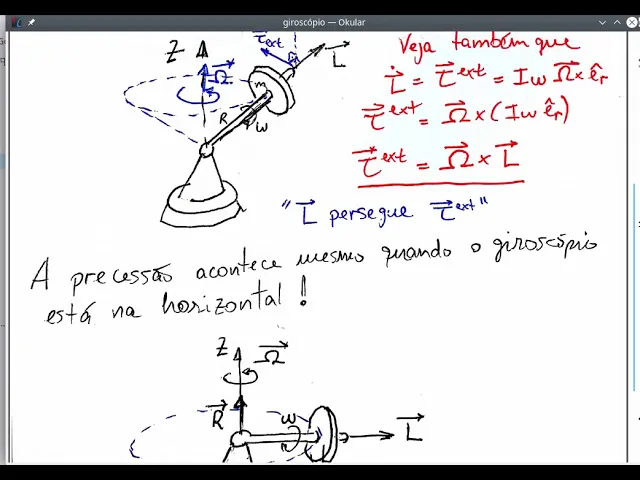 giroscópio — Okular
Veja também que
Z
τ⃗ext
L⃗
Ω⃗
m
R
ω
L̇⃗ = τ⃗ext = Iω Ω⃗ × êr
τ⃗ext = Ω⃗ × (Iω êr)
τ⃗ext = Ω⃗ × L⃗
"L⃗ persegue τ⃗ext"
A precessão acontece mesmo quando o giroscópio
está na horizontal!
Z
Ω⃗
R⃗
ω
L⃗